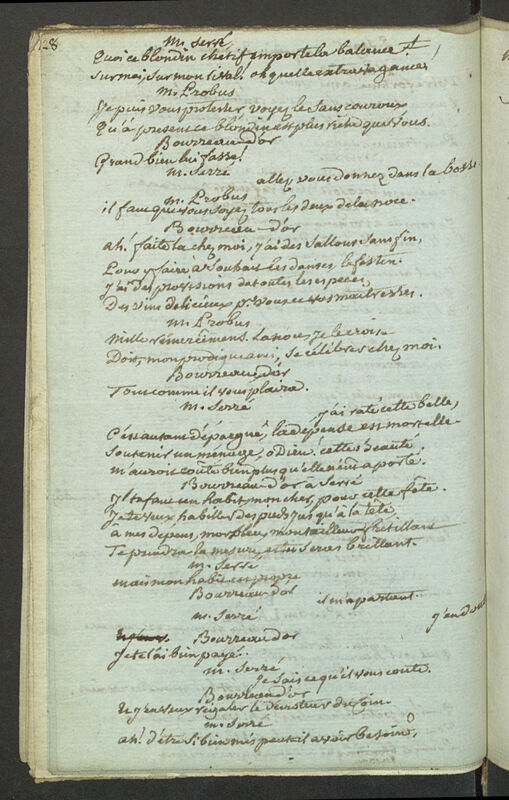 128
M. Serré
Quoi ce blondin chetif emporte la balance!
Sur moi, sur mon rival oh quelle extravagance!
M. Probus
Je puis vous protester voyez le sans couroux
Qu'à present ce blondin est plus riche que vous.
Bourreau d'or
Grand bien lui fasse!
M. Serré
allez, vous donnez dans la bosse
M. Probus
il faut que vous soyez tous les deux de la noce.
Bourreau d'or
ah! faite la chez moi, j'ai des sallons sans fin,
Pour y faire à souhait les danses, le festin.
J'ai des provisions de toutes les especes,
Des vins delicieux pr. vous et vos maitresses.
M. Probus
Mille remerciemens. La noce, je le crois
Doit, mon prodigue ami, se célébrer chez moi.
Bourreau d'or
Tout comme il vous plaira.
M. Serré
j'ai raté cette belle,
C'est autant d'épargné, la depense est mortelle
Soutenir un menage, o Dieu! cette beauté
m'auroit couté bien plus qu'elle n'eut aporté.
Bourreau d'or à Serré
Il te faut un habit, mon cher, pour cette fête.
Je te veux habiller des pieds jusqu'à la tête,
à mes depens, morbleu, mon tailleur
Te prendra la mesure, et tu seras brillant.
M. Serré
mais mon habit est propre
Bourreau d'or
il m'apartient.
M. Serré
J'en
Bourreau d'or
Je te l'ai bien payé.
M. Serré
Je sais ce qu'il vous coute.
Bourreau d'or
Je veux régaler le du coin.
M. Serré
ah! d'être si bien mis peut il avoir besoin?